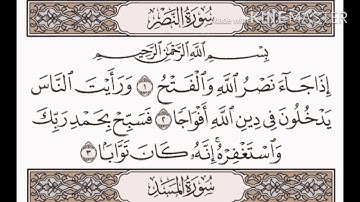 سُورَةُ النَّصْرِ
Made with KINEMASTER
بِسْمِ اللَّهِ الرَّحْمَٰنِ الرَّحِيمِ
إِذَا جَاءَ نَصْرُ اللَّهِ وَالْفَتْحُ ١ وَرَأَيْتَ النَّاسَ
يَدْخُلُونَ فِي دِينِ اللَّهِ أَفْوَاجًا ٢ فَسَبِّحْ بِحَمْدِ رَبِّكَ
وَاسْتَغْفِرْهُ ۚ إِنَّهُ كَانَ تَوَّابًا ٣
سُورَةُ الْمَسَدِ